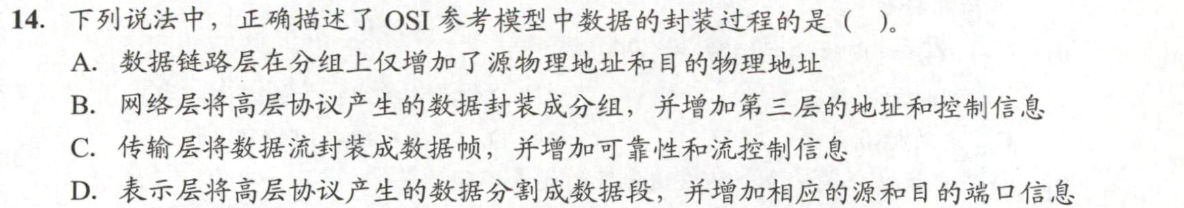 14. 下列说法中，正确描述了 OSI 参考模型中数据的封装过程的是（ ）。
A. 数据链路层在分组上仅增加了源物理地址和目的物理地址
B. 网络层将高层协议产生的数据封装成分组，并增加第三层的地址和控制信息
C. 传输层将数据流封装成数据帧，并增加可靠性和流控制信息
D. 表示层将高层协议产生的数据分割成数据段，并增加相应的源和目的端口信息